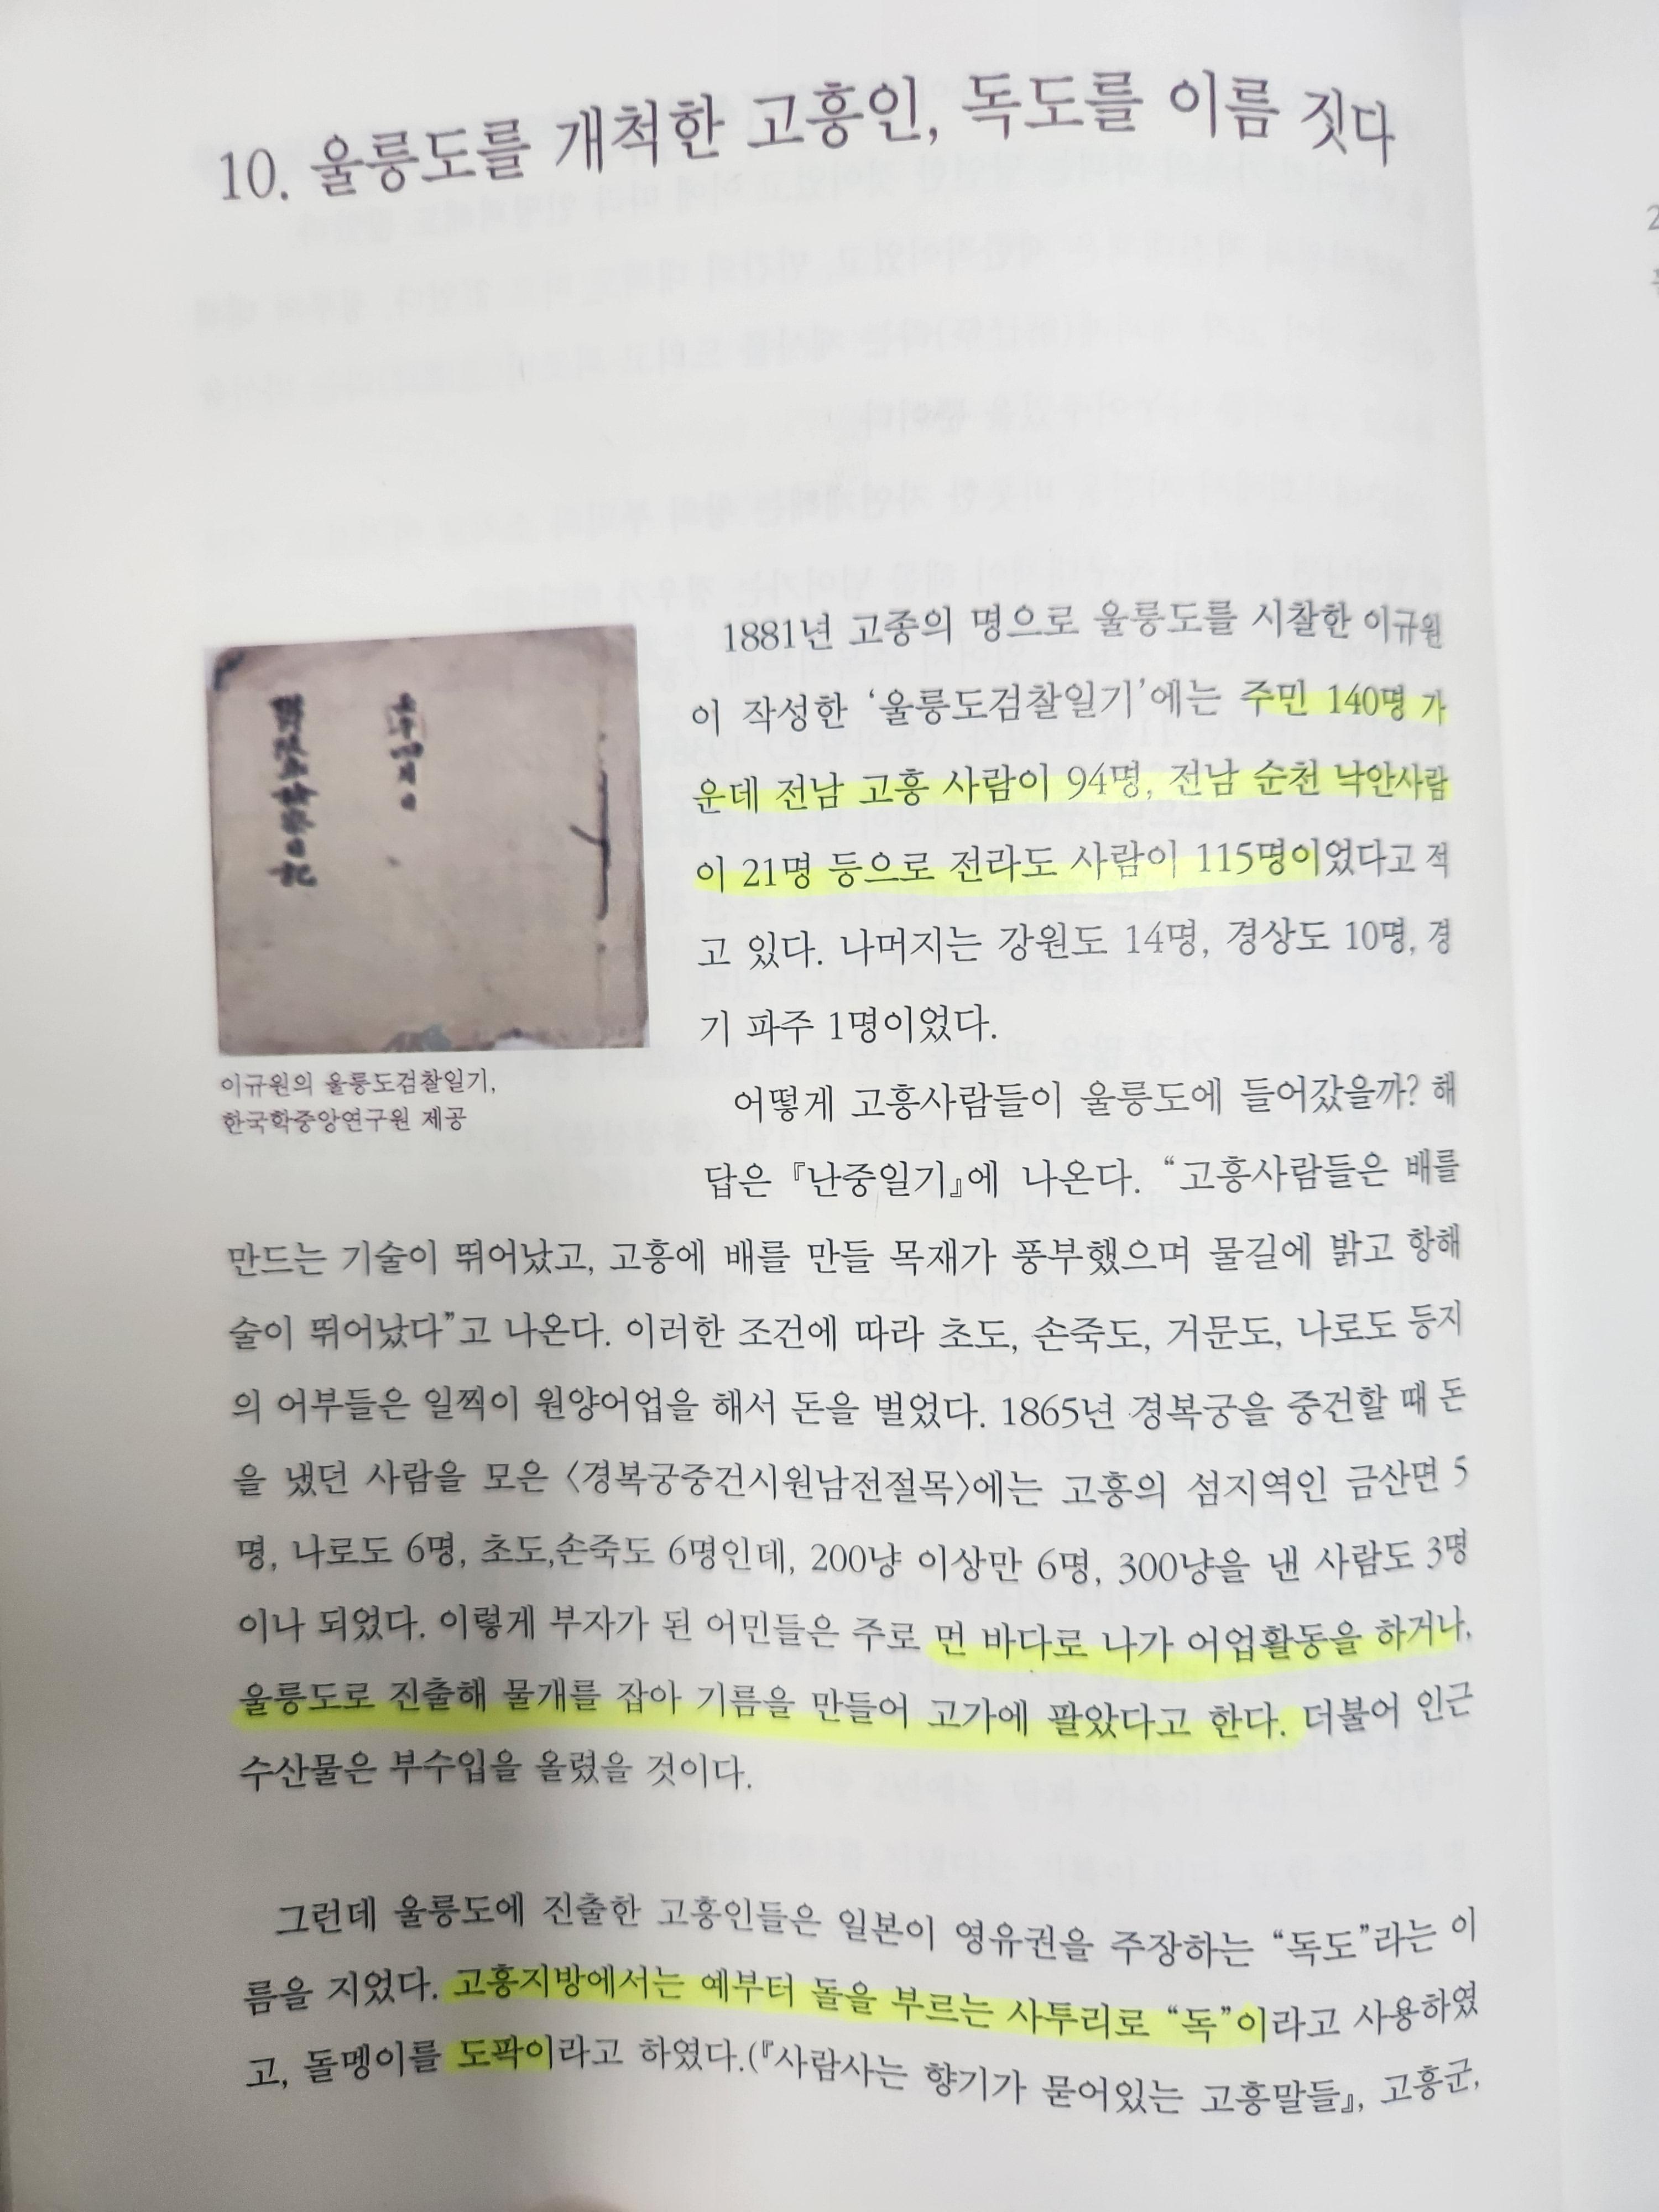 10. 울릉도를 개척한 고흥인, 독도를 이름 짓다
1881년 고종의 명으로 울릉도를 시찰한 이규원
이 작성한 ‘울릉도검찰일기’에는 주민 140명 가
운데 전남 고흥 사람이 94명, 전남 순천 낙안사람
이 21명 등으로 전라도 사람이 115명이었다고 적
고 있다. 나머지는 강원도 14명, 경상도 10명, 경
기 파주 1명이었다.
이규원의 울릉도검찰일기,
한국학중앙연구원 제공
어떻게 고흥사람들이 울릉도에 들어갔을까? 해
답은 『난중일기』에 나온다. “고흥사람들은 배를
만드는 기술이 뛰어났고, 고흥에 배를 만들 목재가 풍부했으며 물길에 밝고 항해
술이 뛰어났다”고 나온다. 이러한 조건에 따라 초도, 손죽도, 거문도, 나로도 등지
의 어부들은 일찍이 원양어업을 해서 돈을 벌었다. 1865년 경복궁을 중건할 때 돈
을 냈던 사람을 모은 〈경복궁중건시원남전절목〉에는 고흥의 섬지역인 금산면 5
명, 나로도 6명, 초도,손죽도 6명인데, 200냥 이상만 6명, 300냥을 낸 사람도 3명
이나 되었다. 이렇게 부자가 된 어민들은 주로 먼 바다로 나가 어업활동을 하거나,
울릉도로 진출해 물개를 잡아 기름을 만들어 고가에 팔았다고 한다. 더불어 인근
수산물은 부수입을 올렸을 것이다.
그런데 울릉도에 진출한 고흥인들은 일본이 영유권을 주장하는 “독도”라는 이
름을 지었다. 고흥지방에서는 예부터 돌을 부르는 사투리로 “독”이라고 사용하였
고, 돌멩이를 도팍이라고 하였다.(『사람사는 향기가 묻어있는 고흥말들』, 고흥군,